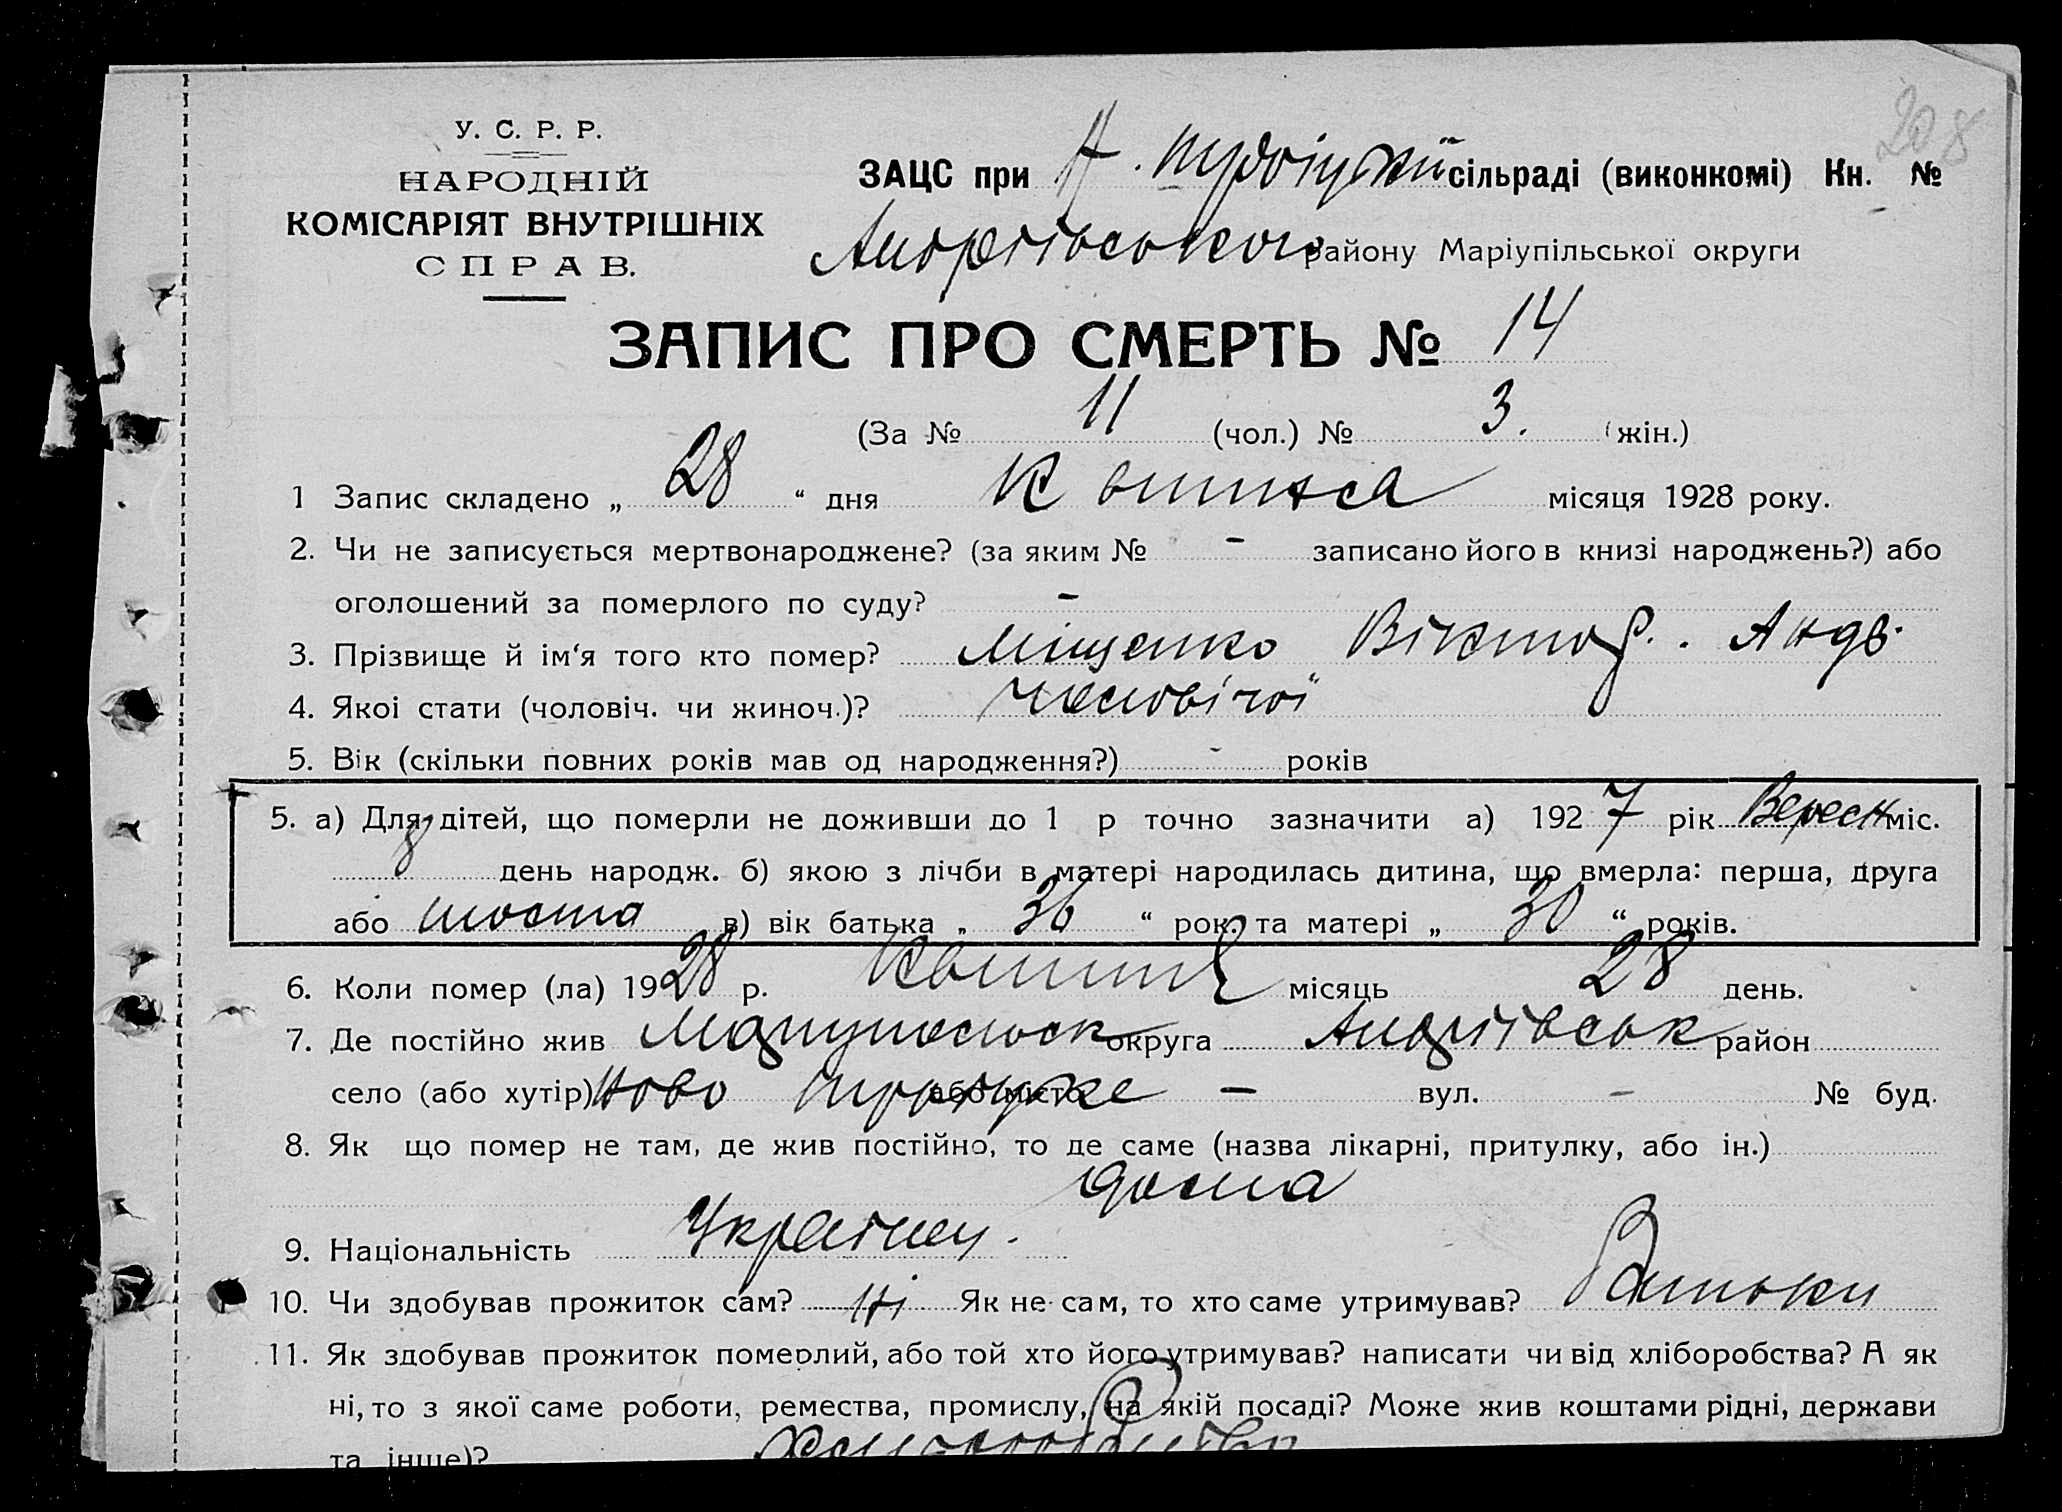 208
У. С. Р. Р.
НАРОДНІЙ
КОМІСАРІЯТ ВНУТРІШНІХ
СПРАВ.
ЗАЦС при Н. Троіцкій сільраді (виконкомі) Кн. №
Андріівського району Маріупільської округи
ЗАПИС ПРО СМЕРТЬ № 14
(За № 11 (чол.) № 3. (жін.)
1 Запис складено „ 28 “ дня Квітня місяця 1928 року.
2. Чи не записується мертвонароджене? (за яким № - записано його в книзі народжень?) або
оголошений за померлого по суду? -
3. Прізвище й ім‘я того кто помер? Міщенко Віктор. Андр.
4. Якоі стати (чоловіч. чи жиноч.)? чоловічої
5. Вік (скільки повних років мав од народження?) - років
5. а) Для дітей, що померли не доживши до 1 р точно зазначити а) 1927 рік Вересн міс.
8 день народж. б) якою з лічби в матері народилась дитина, що вмерла: перша, друга
або шоста в) вік батька „ 36 “ рок. та матері „ 30 “ років.
6. Коли помер (ла) 1928 р. Квітня місяць 28 день.
7. Де постійно жив Маріупольськ округа Андріівськ район
село (або хутір) Ново Троіцке або місто - вул. - № буд.
8. Як що помер не там, де жив постійно, то де саме (назва лікарні, притулку, або ін.)
дома
9. Національність Украінец.
10. Чи здобував прожиток сам? Ні Як не сам, то хто саме утримував? Батьки
11. Як здобував прожиток померлий, або той хто його утримував? написати чи від хліборобства? А як
ні, то з якої саме роботи, ремества, промислу, на якій посаді? Може жив коштами рідні, держави
та інше)?